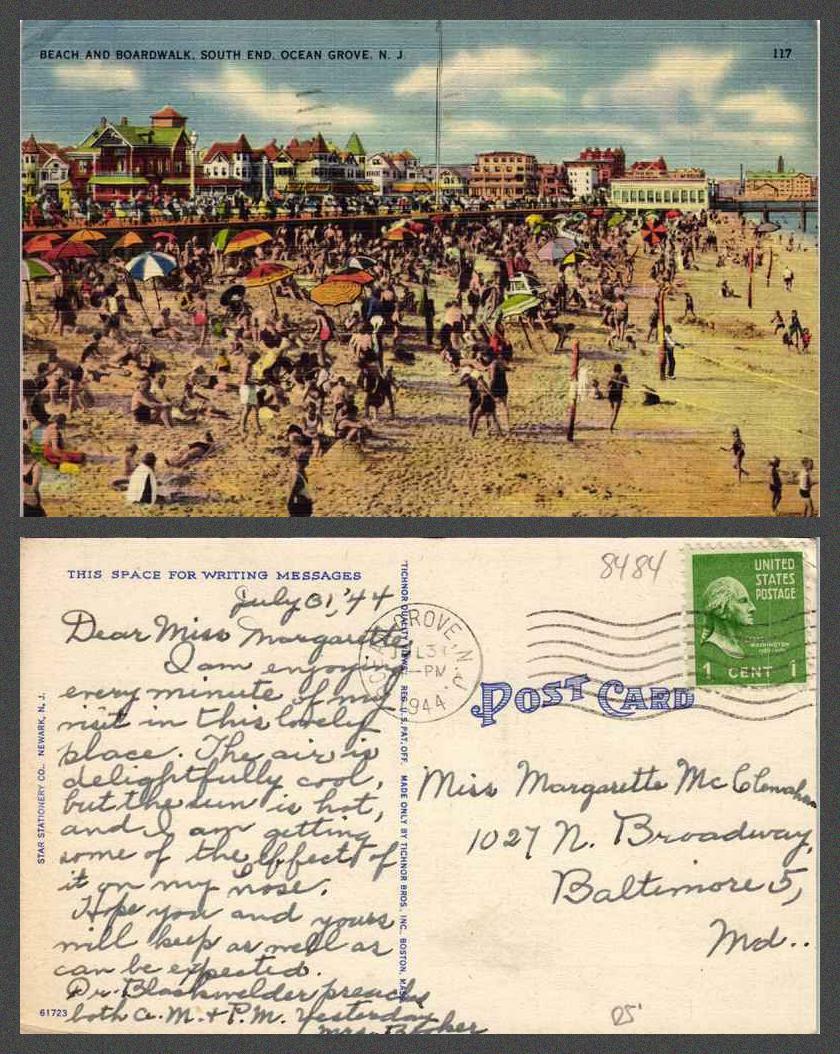 BEACH AND BOARDWALK, SOUTH END, OCEAN GROVE, N. J.
117
THIS SPACE FOR WRITING MESSAGES
July 31, '44
Dear Miss Margarette,
I am enjoying
every minute of my
visit in this lovely
place. The air is
delightfully cool,
but the sun is hot,
and I am getting
some of the effects of
it on my nose.
Hope you and yours
will keep as well as
can be expected.
Dr. Blackwelder preached
both A.M. + P.M. Yesterday
Mrs. Booker
STAR STATIONERY CO., NEWARK, N. J.
61723
"TICHNOR QUALITY VIEWS," REG. U. S. PAT. OFF. MADE ONLY BY TICHNOR BROS., INC., BOSTON, MASS.
8484
OCEAN GROVE, N.J.
JUL 31
-PM
1944
UNITED
STATES
POSTAGE
WASHINGTON
1 CENT 1
POST CARD
Miss Margarette McClenahan
1027 N. Broadway,
Baltimore 5,
Md..